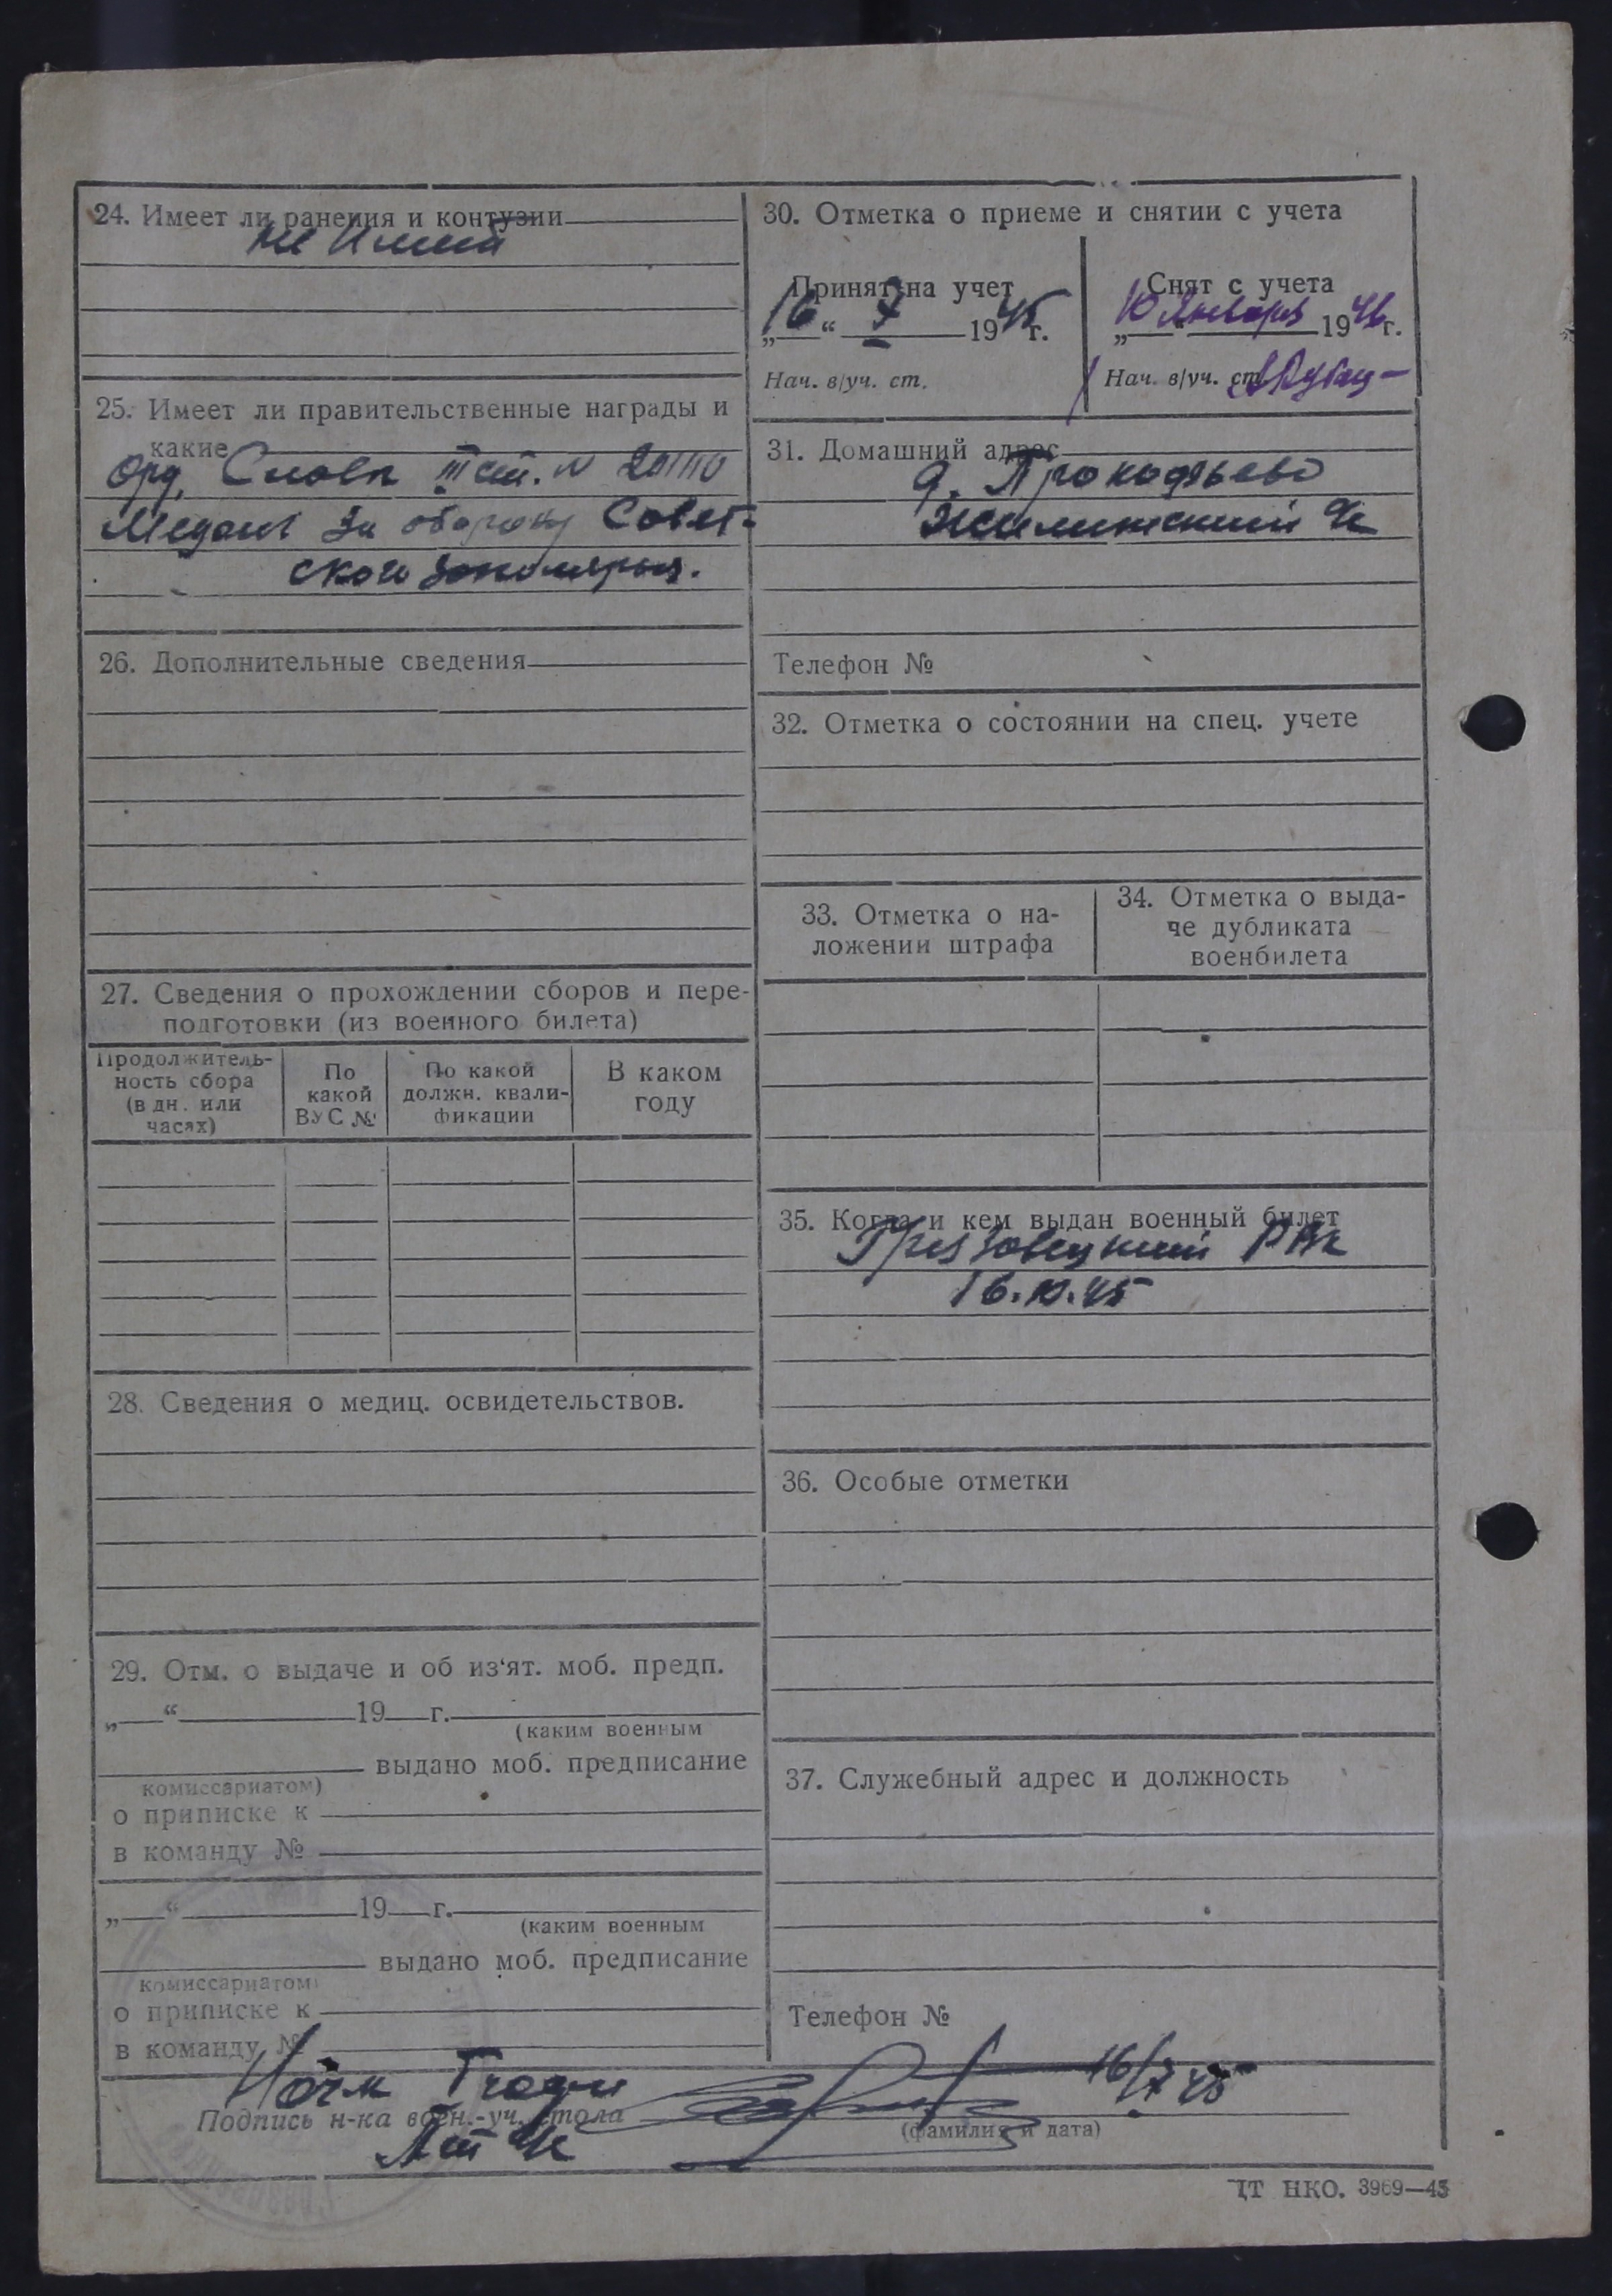 24. Имеет ли ранения и контузии
не имеет
25. Имеет ли правительственные награды и
какие
Орд. Слова III ст. №
Медаль За оборону Совет-
ского Заполярья.
26. Дополнительные сведения
27. Сведения о прохождении сборов и пере-
подготовки (из военного билета)
Продолжитель-
ность сбора
(в дн. или
часах)
По
какой
ВУС №
По какой
должн. квали-
фикации
В каком
году
28. Сведения о медиц. освидетельствов.
29. Отм. о выдаче и об из‘ят. моб. предп.
„ “ 19 г.
(каким военным
выдано моб. предписание
комиссариатом)
о приписке к
в команду №
„ “ 19 г.
(каким военным
выдано моб. предписание
комиссариатом)
о приписке к
в команду №
30. Отметка о приеме и снятии с учета
Принят на учет
„16“ 7 1945 г.
Нач. в/уч. ст.
Снят с учета
„10“ Января 1946 г.
Нач. в/уч. ст.
31. Домашний адрес
д. Прокофьево
Телефон №
32. Отметка о состоянии на спец. учете
33. Отметка о на-
ложении штрафа
34. Отметка о выда-
че дубликата
военбилета
35. Когда и кем выдан военный билет
Грязовецкий РВК
16.10.45
36. Особые отметки
37. Служебный адрес и должность
Телефон №
16/7 45
Подпись н-ка воен.-уч. стола
(фамилия и дата)
ЦТ НКО. 3969—43